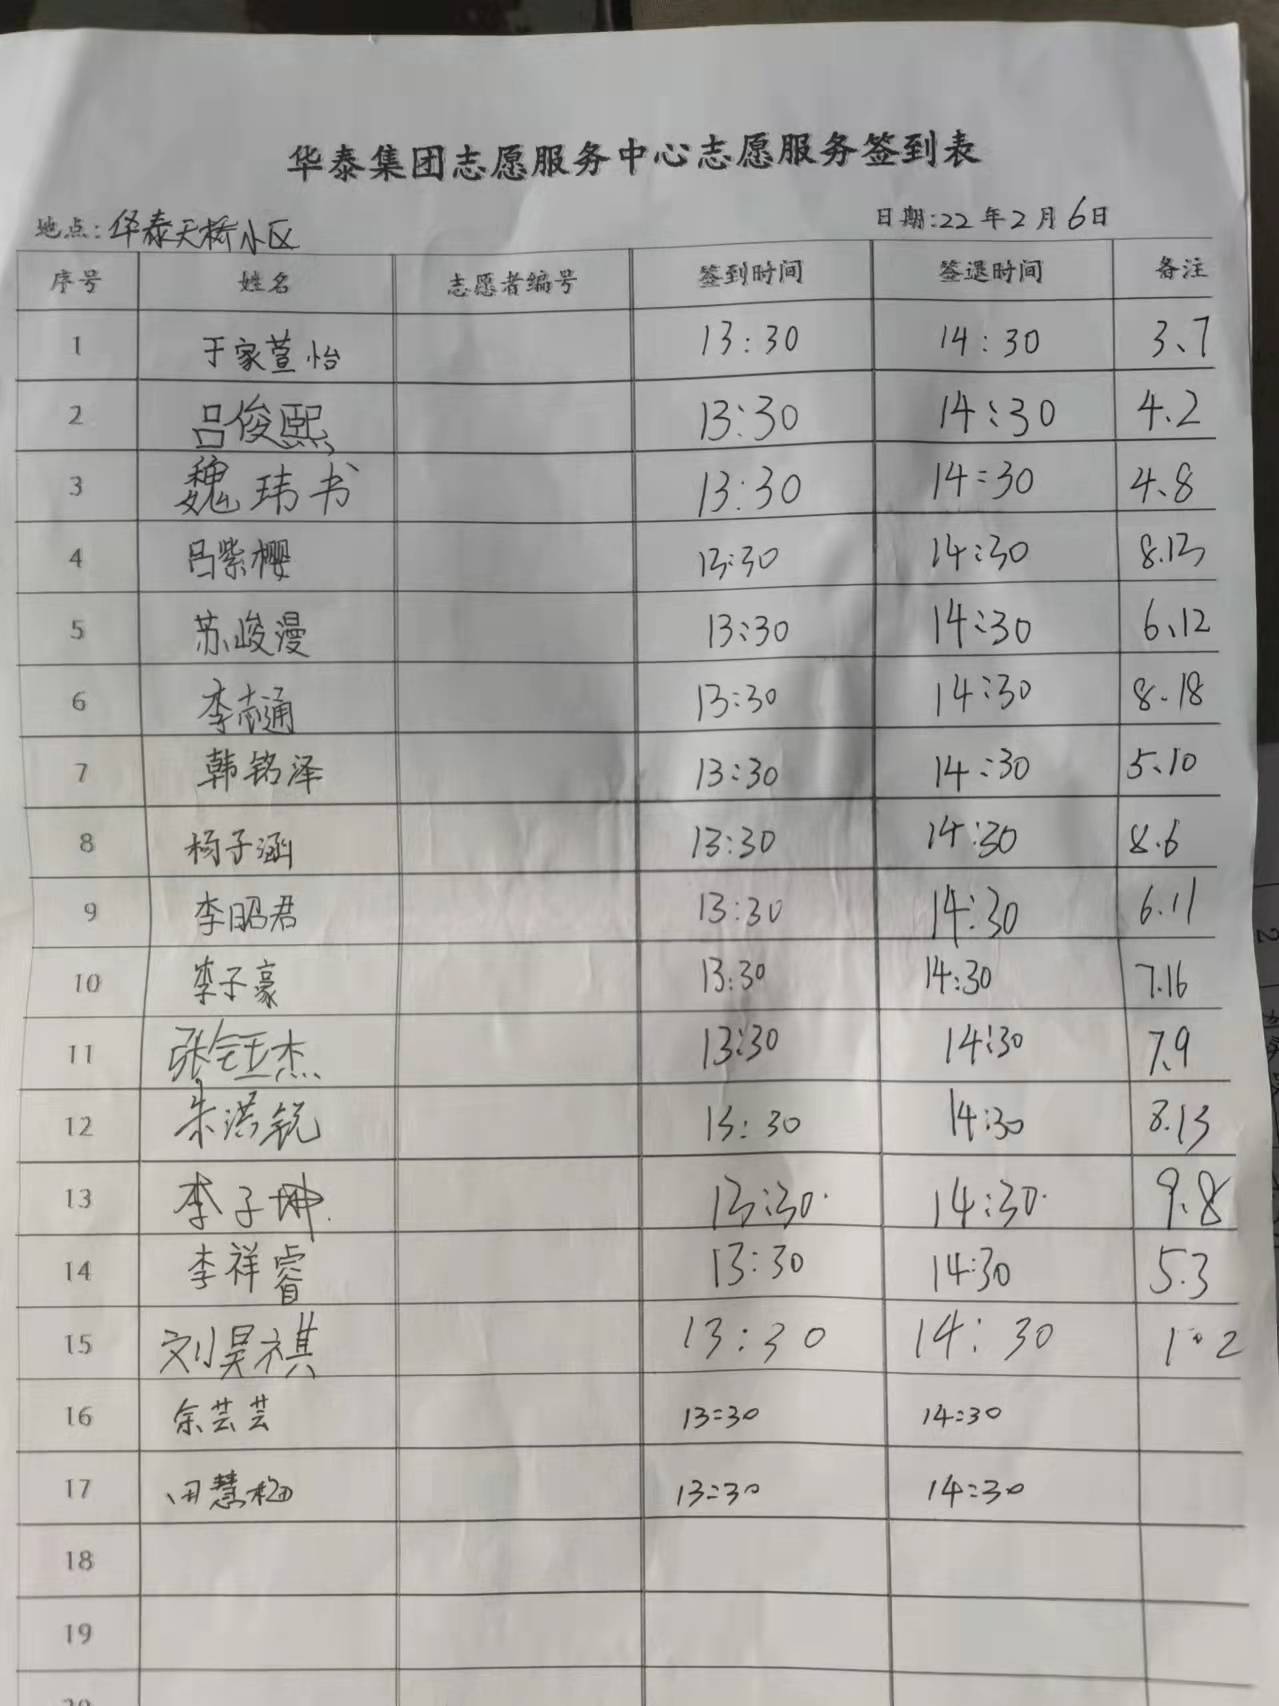 华泰集团志愿服务中心志愿服务签到表
地点:华泰天桥小区 日期:22年2月6日
序号 姓名 志愿者编号 签到时间 签退时间 备注
1 于家萱怡 13:30 14:30 3、7
2 吕俊熙 13:30 14:30 4.2
3 魏玮书 13:30 14:30 4、8
4 吕紫樱 13:30 14:30 8.13
5 苏峻漫 13:30 14:30 6、12
6 李志通 13:30 14:30 8.18
7 韩铭泽 13:30 14:30 5、10
8 杨子涵 13:30 14:30 8.6
9 李昭君 13:30 14:30 6.11
10 李子豪 13:30 14:30 7.16
11 张钰杰 13:30 14:30 7.9
12 朱洪锐 13:30 14:30 8.13
13 李子坤 13:30 14:30 9.8
14 李祥睿 13:30 14:30 5.3
15 刘昊祺 13:30 14:30 1.2
16 余芸芸 13:30 14:30
17 田慧梅 13:30 14:30
18
19